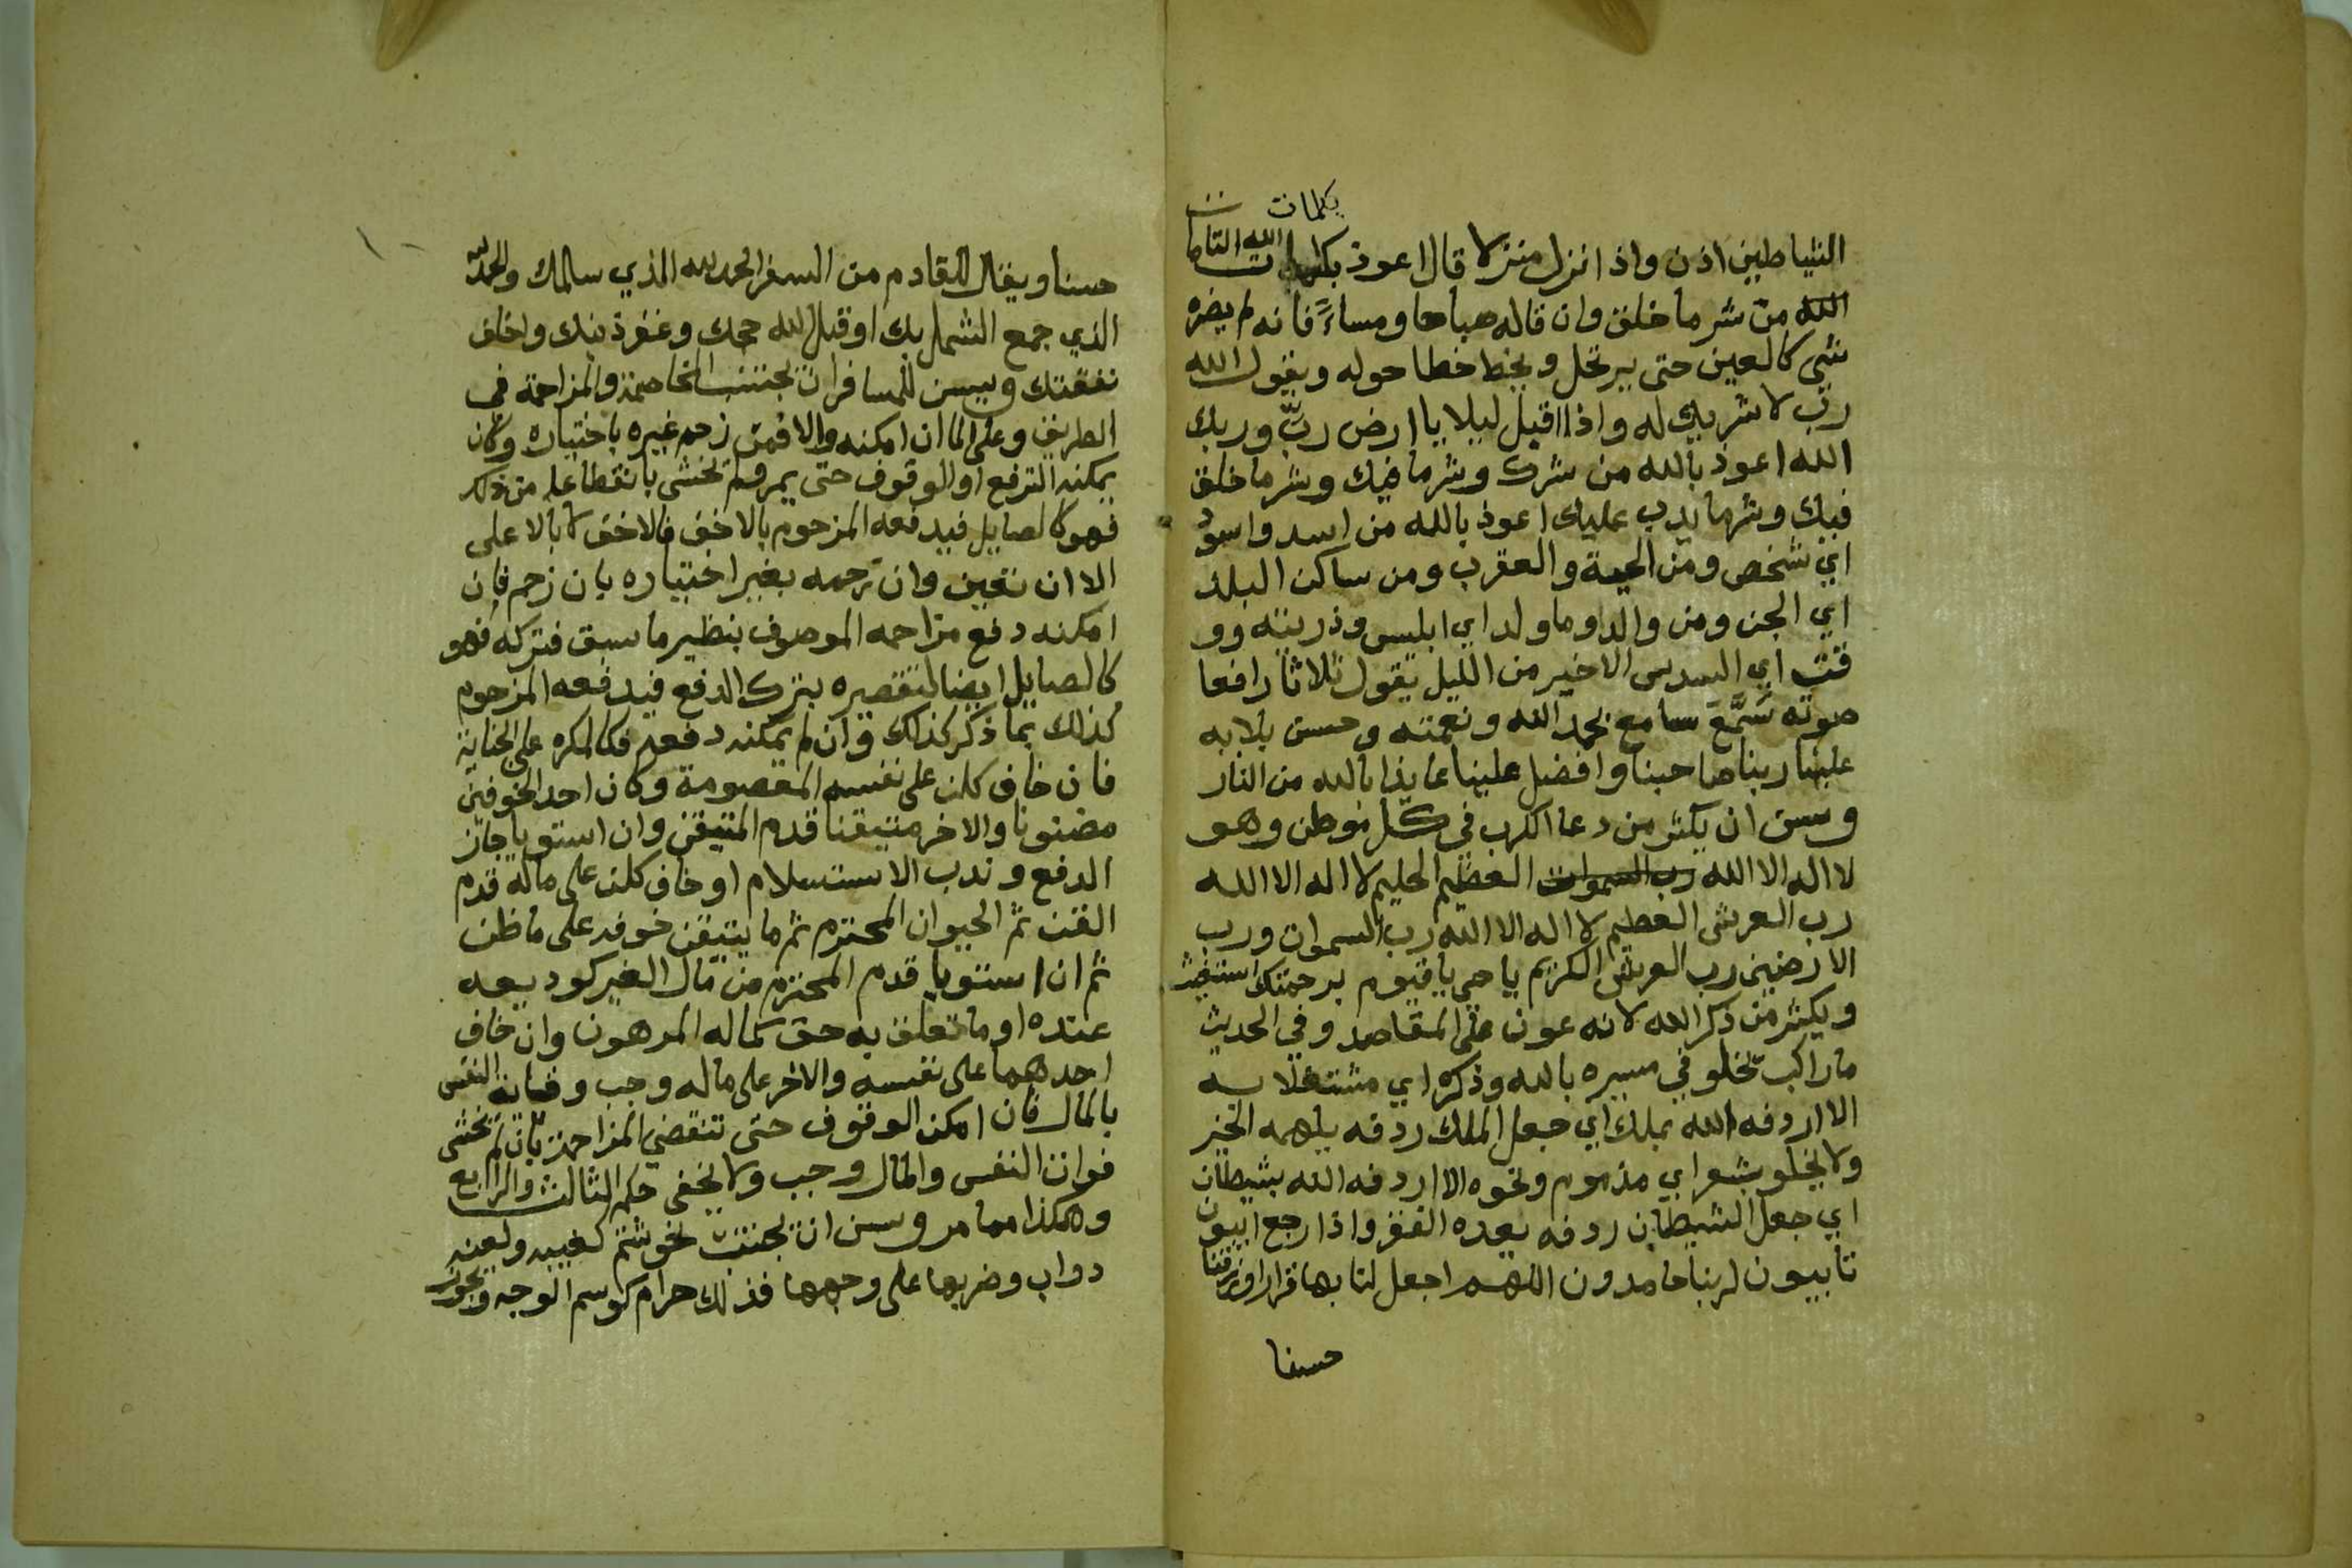 بكلمات
الشياطين اذن واذا نزل منزلا قال اعوذ بكلمات الله التامات
الله من شر ما خلق وان قاله صباحا ومساءً فانه لم يضره
شي كالعين حتى يرتحل ويخط خطا حوله ويقول الله
ربي لا شريك له واذا اقبل ليلا يا ارض ربي وربك
الله اعوذ بالله من شرك وشر ما فيك وشر ما خلق
فيك وشر ما يدب عليك اعوذ بالله من اسد واسود
اي شخص ومن الحية والعقرب ومن ساكن البلد
اي الجن ومن والد وما ولد اي ابليس وذريته وو
قت اي السدس الاخير من الليل يقول ثلاثا رافعا
صوته سَمَّعَ سامع بحمد الله ونعمته وحسن بلايه
علينا ربنا صاحبنا وافضل علينا عايذا بالله من النار
وسن ان يكثر من دعا الكرب في كل موطن وهو
لا اله الا الله رب السموات العظيم الحليم لا اله الا الله
رب العرش العظيم لا اله الا الله رب السموات ورب
الارضين رب العرش الكريم يا حي يا قيوم برحمتك استغيث
ويكثر من ذكر الله لانه عون على المقاصد وفي الحديث
ما راكب تخلو في مسيره بالله وذكره اي مشتغلا به
الا اردفه الله بملك اي جعل الملك ردفه يلهمه الخير
ولا يخلو بشعر اي مذموم ونحوه الا اردفه الله بشيطان
اي جعل الشيطان ردفه يعده الفقر واذا رجع ايبون
تايبون لربنا حامدون اللهم اجعل لنا بها قرارا ورزقا
حسنا
حسنا ويقال للقادم من السفر الحمد لله الذي سلمك والحمد لله
الذي جمع الشمل بك او قبل الله حجك وغفر ذنبك واخلف
نفقتك ويسن للمسافر ان يجتنب المخاصمة والمزاحمة في
الطريق وعلى الما ان امكنه والا فمن زحم غيره باختياره وكان
يمكنه الترفع او الوقوف حتى يمر ولم يخشى بانقطاعه من ذلك
فهو كالصايل فيدفعه المزحوم بالاخف فالاخف لا بالاعلى
الا ان تعين وان زحمه بغير اختياره بان زحم فان
امكنه دفع مزاحمه الموصوف بنظير ما سبق فتركه فهو
كالصايل ايضا لتقصيره بترك الدفع فيدفعه المزحوم
كذلك بما ذكر كذلك وان لم يمكنه دفعه فكالمكره على الجناية
فان خاف كل على نفسه المعصومة وكان احد الخوفين
مضنونا والاخر متيقنا قدم المتيقن وان استويا جاز
الدفع وندب الاستسلام او خاف كل على ماله قدم
القن ثم الحيوان المحترم ثم ما يتيقن خوفه على ما ظن
ثم ان استويا قدم المحترم من مال الغير كوديعه
عنده او ما تعلق به حق كماله المرهون وان خاف
احدهما على نفسه والاخر على ماله وجب وقاية النفس
بالمال فان امكن الوقوف حتى تنقضي المزاحمة بان لم يخشى
فوات النفس والمال وجب ولا يخفى حكم الثالث والرابع
وهكذا مما مر وسن ان يجتنب نحو شتم كغيبه ولعنه
دواب وضربها على وجهها فذلك حرام كوسم الوجه ويجوز